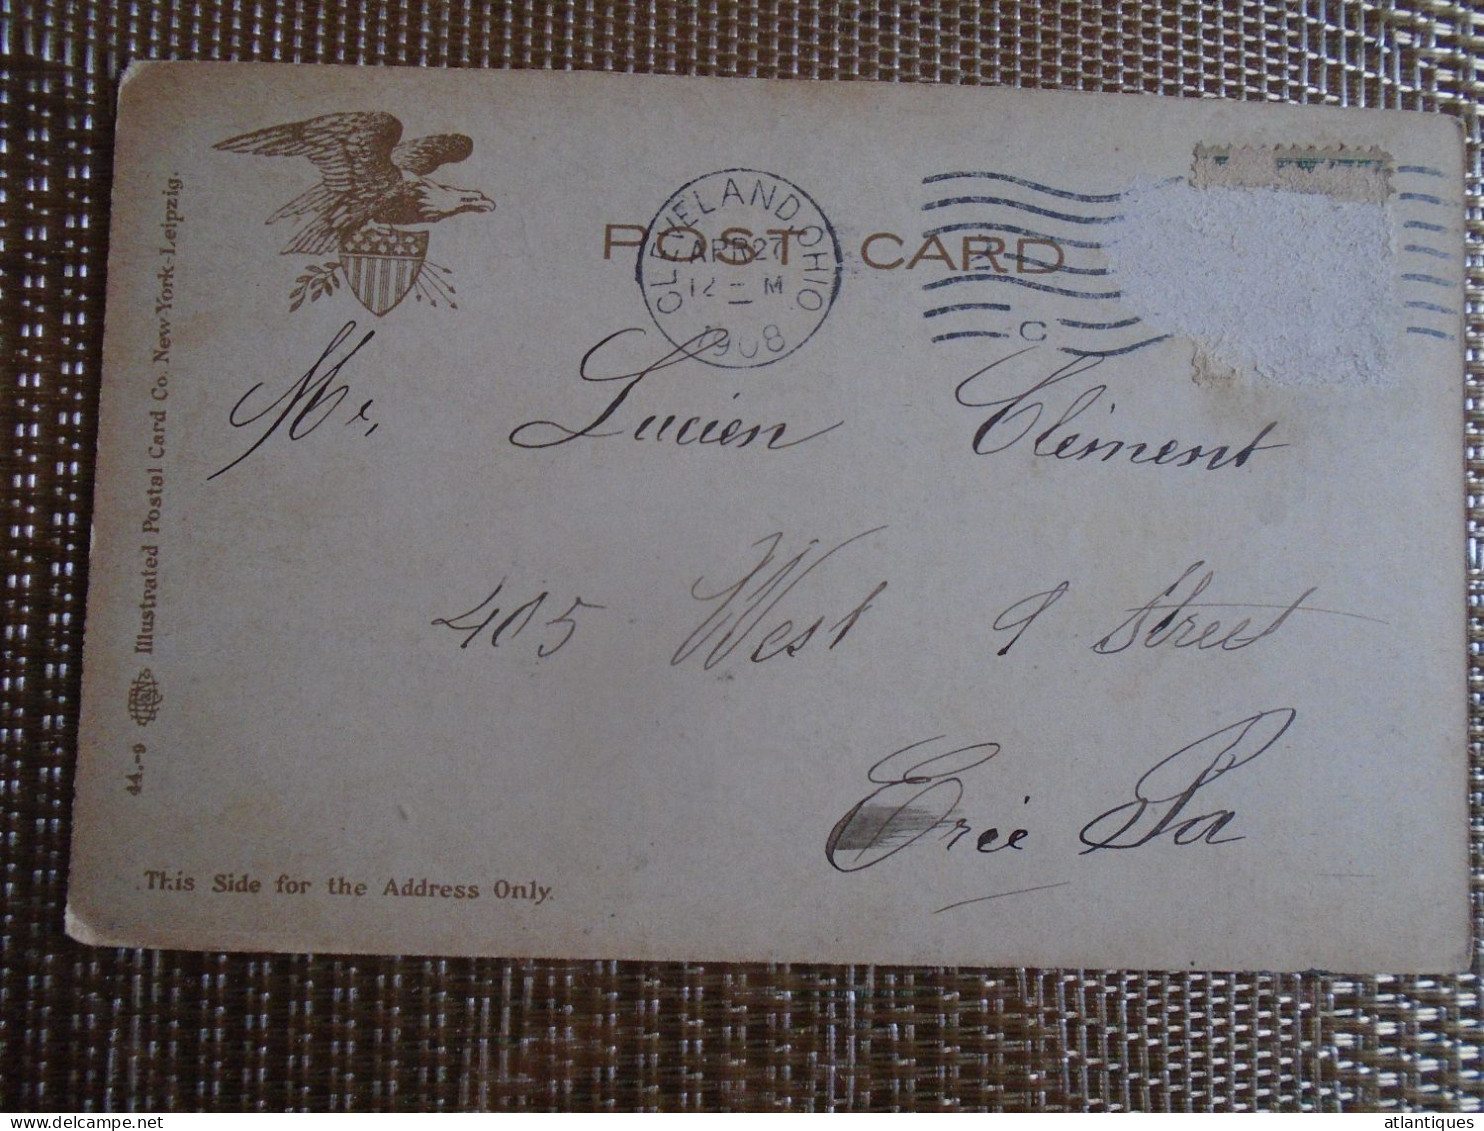 POST CARD
CLEVELAND, OHIO
APR 27
12 - M
1908
C
Mr. Lucien Clément
405 West 9 Street
Erie Pa
This Side for the Address Only.
44.-9 Illustrated Postal Card Co. New York-Leipzig.
atlantiques